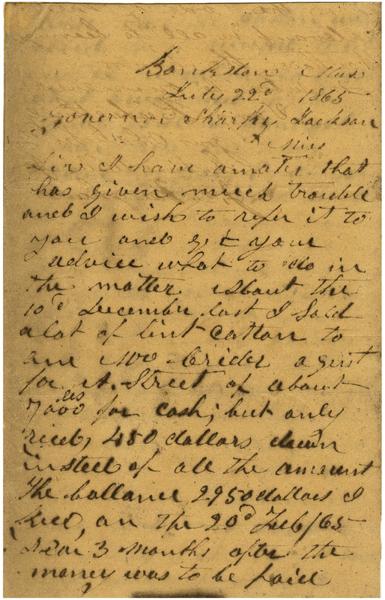 Bankston Miss
July 22d 1865
Governor Sharkey Jackson
Miss
Sir I have a mater that
has given much trouble
and I wish to refer it to
you and get your
advice what to do in
the matter about the
10d December last I Sold
a lot of lint Cotton to
one Crider agent
for A. Street of about
7,000 lbs for cash; but only
recd, 450 dollars down
insted of all the amount
The ballance 2950 dollars I
Recd, on the 20d Feb/65
near 3 months after the
money was to be paid